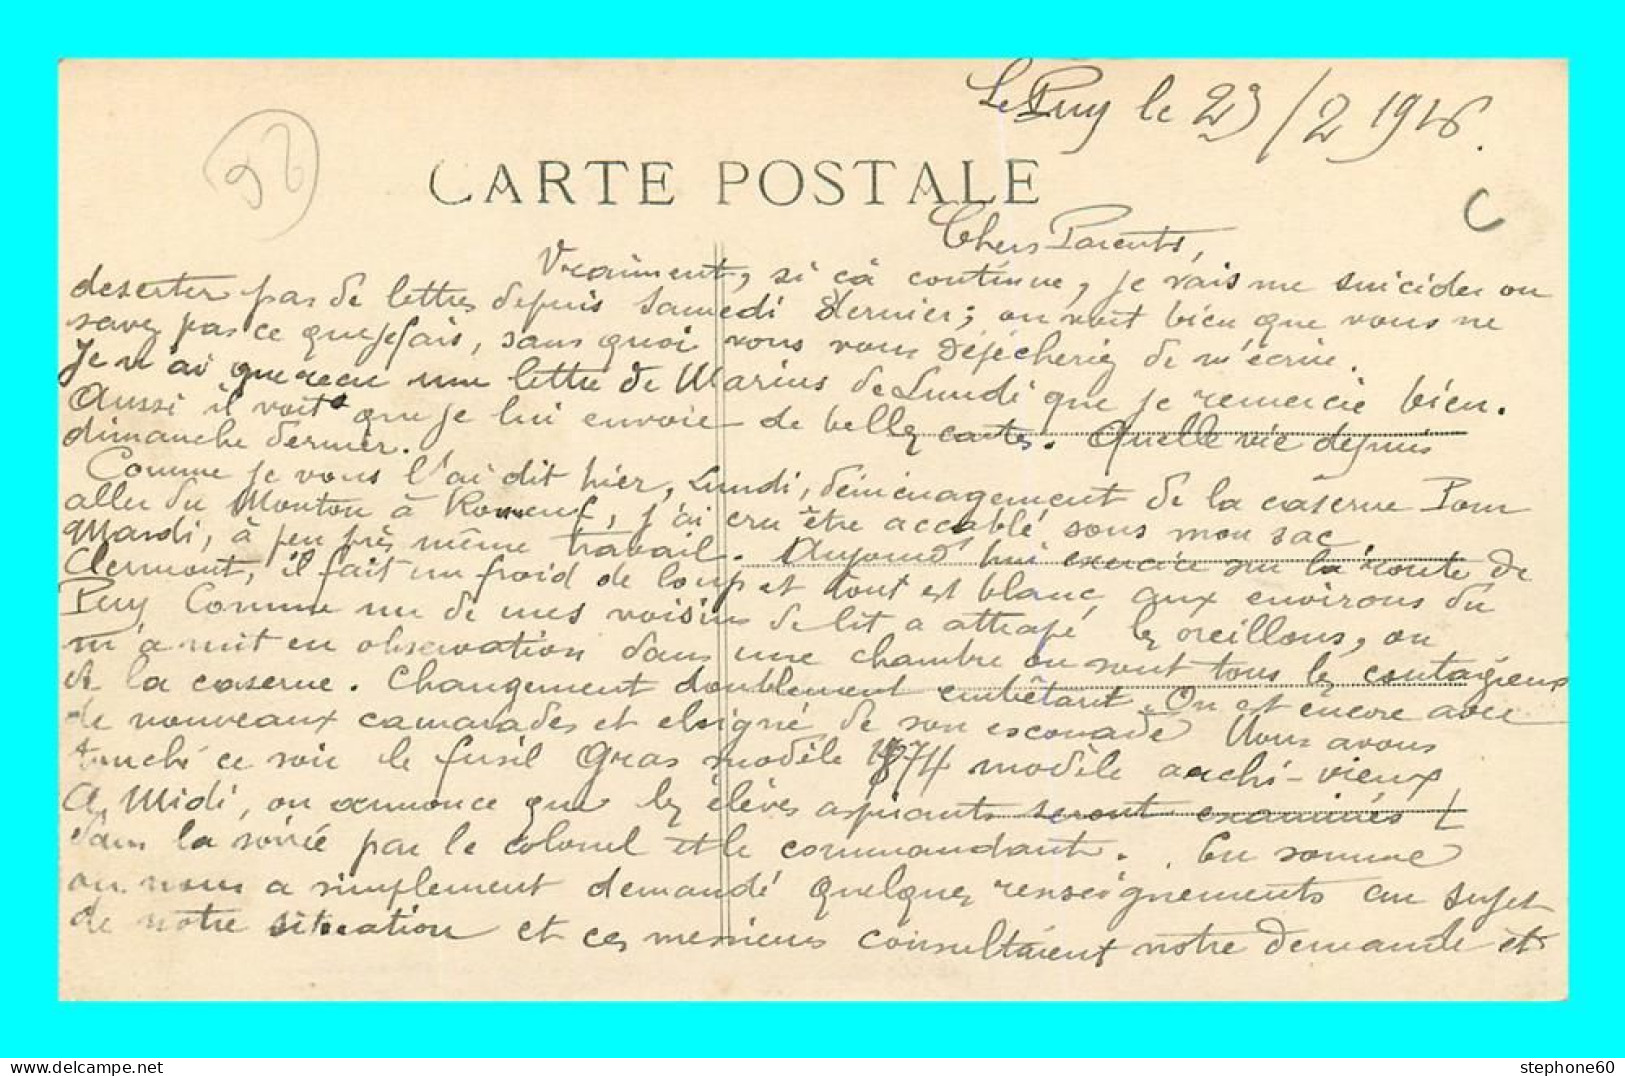 Le Puy le 23/2 1916.
CARTE POSTALE
Chers Parents,
Vraiment, si cà continue, je vais me suicider ou
deserter pas de lettres depuis Samedi dernier; on voit bien que vous ne
savez pas ce que je fais, sans quoi vous vous dépêcheriez de m'écrire.
Je n'ai que recu une lettre de Marius de Lundi que je remercie bien.
Aussi il voit que je lui envoie de belles cartes. Quelle vie depuis
dimanche dernier.
Comme je vous l'ai dit hier, Lundi, déménagement de la caserne Pour
aller du Monton à Romeuf, j'ai cru être accablé sous mon sac.
Mardi, à peu près même travail. Aujourd'hui exercice sur la route de
Clermont, il fait un froid de loup et tout est blanc aux environs du
Puy Comme un de mes voisins de lit a attrapé les oreillons, on
m'a mit en observation dans une chambre ou sont tous les contagieux
de la caserne. Changement doublement embêtant. On est encore avec
de nouveaux camarades et eloigné de son escouade Nous avons
touché ce soir le fusil Gras modèle 1874 modèle archi-vieux
A Midi, on annonce que les élèves aspirants seront examinés
dans la soirée par le colonel et le commandant. En somme
on nous a simplement demandé quelques renseignements au sujet
de notre situation et ces messieurs consultaient notre demande et
delcampe.net
stephone60